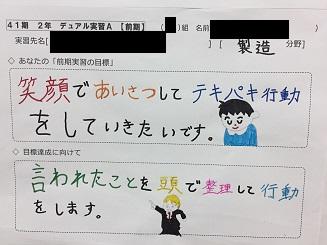 41期 2年 デュアル実習A 【前期】 ( )組 名前
実習先名( 製造 分野)
◇ あなたの「前期実習の目標」
笑顔であいさつしてテキパキ行動
をしていきたいです。
◇ 目標達成に向けて
言われたことを頭で整理して行動
をします。